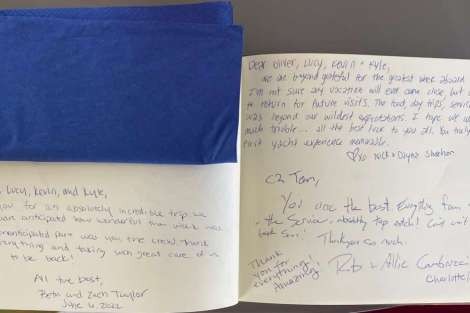 , Lucy, Kevin, and Kyle,
you for an absolutely incredible trip. We
have anticipated how wonderful this week was
unanticipated part was you, the crew. Thank
everything and taking such great care of us
to be back!
All the best,
Beth and Zach Taylor
June 6, 2022
Dear Oliver, Lucy, Kevin + Kyle,
We are beyond grateful for the greatest week aboard
I'm not sure any vacation will ever come close but
to return for future visits. The food, day trips, service
was beyond our wildest expectations. I hope we
much trouble... all the best luck to you all. You truly
first yacht experience memorable.
xo Nick + Dayna
C2 Team,
You are the best. Everything from
the service - absolutely top notch! Can't wait
back soon!
Thank you so much,
Thank
you for
everything!
Amazing!
Rob + Allie
Charlotte